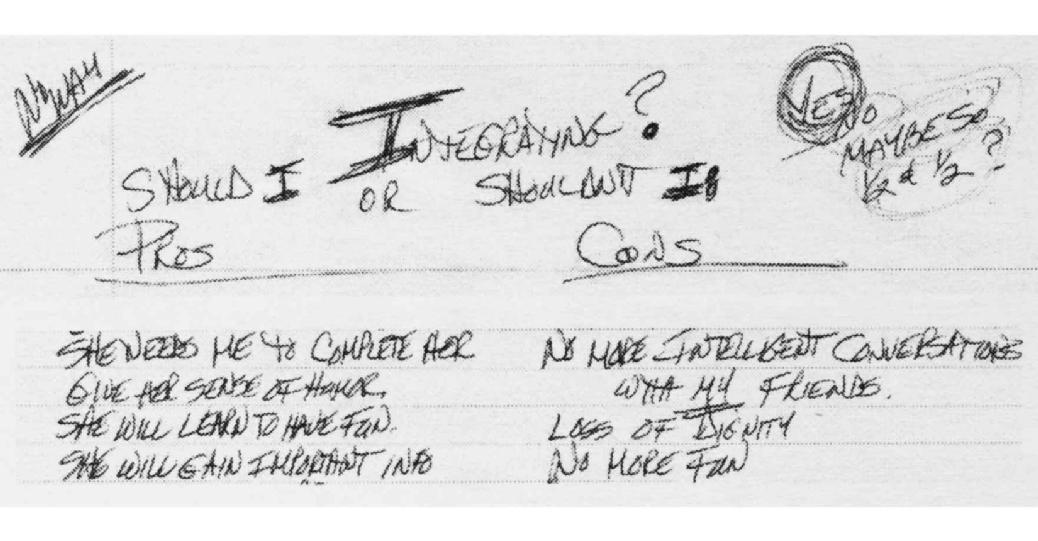 NO WAY
INTEGRATING?
SHOULD I OR SHOULDN'T I?
YES
NO
MAYBE SO
1/2 & 1/2 ?
PROS
CONS
SHE NEEDS ME TO COMPLETE HER
GIVE HER SENSE OF HUMOR.
SHE WILL LEARN TO HAVE FUN.
SHE WILL GAIN IMPORTANT INFO
NO MORE INTELLIGENT CONVERSATIONS
WITH MY FRIENDS.
LOSS OF DIGNITY
NO MORE FUN